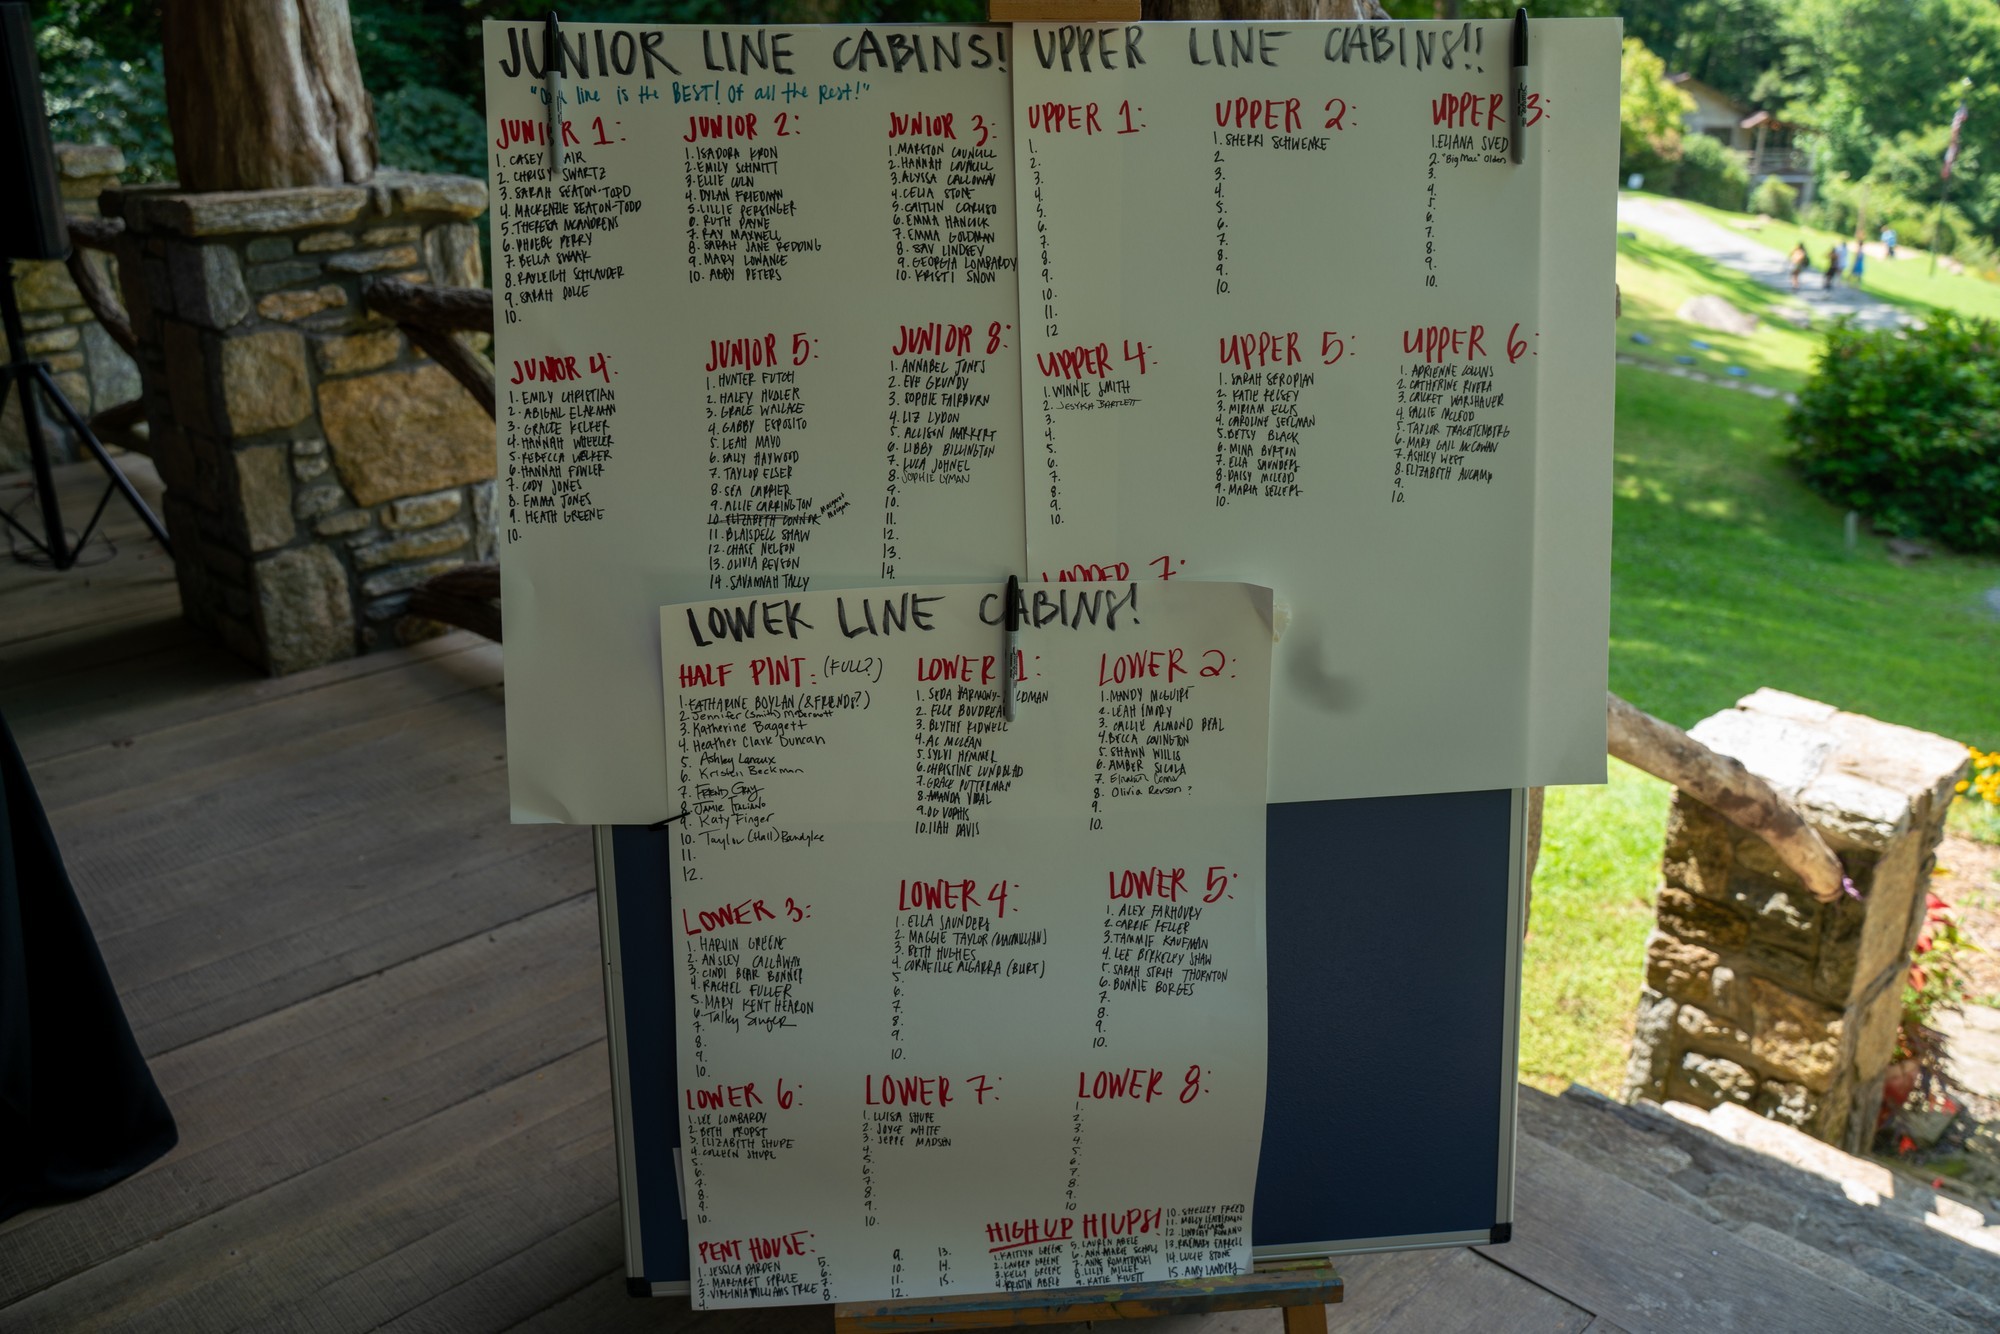 JUNIOR LINE CABINS!
line is the BEST! Of all the Rest!"
JUNIOR 1:
1. CASEY
2. CHRISSY SWARTZ
3. SARAH SEATON-TODD
4. MACKENZIE SEATON-TODD
5. THERESA MCANDRENS
6. PHOEBE PERRY
7. BELLA SWAAK
8. RAYLEIGH SCHLAUDER
9. SARAH DOLLE
10.
JUNIOR 2:
1. ISADORA KRON
2. EMILY SCHMITT
3. ELLIE CULN
4. DYLAN FRIEDMAN
5. LILLIE PERSINGER
6. RUTH PAYNE
7. RAY MAXWELL
8. SARAH JANE REDDING
9. MARY LOWANCE
10. ABBY PETERS
JUNIOR 3:
1. MARSTON COUNCILL
2. HANNAH COUNCILL
3. ALYSSA CALLOWAY
4. CELIA STONE
5. CAITLIN CARUSO
6. EMMA HANCOCK
7. EMMA GOLDMAN
8. SAV LINDSEY
9. GEORGIA LOMBARDY
10. KRISTI SNOW
JUNIOR 4:
1. EMILY CHRISTIAN
2. ABIGAIL ELARMAN
3. GRACIE KELKER
4. HANNAH WHEELER
5. REBECCA WALKER
6. HANNAH FOWLER
7. CODY JONES
8. EMMA JONES
9. HEATH GREENE
10.
JUNIOR 5:
1. HUNTER FUTCH
2. HALEY HUDLER
3. GRACE WALLACE
4. GABBY ESPOSITO
5. LEAH MAYO
6. SALLY HAYWOOD
7. TAYLOR ELSER
8. SEA CARRIER
9. ALLIE CARRINGTON
10. ELIZABETH CONNOR
11. BLAISDELL SHAW
12. CHASE NELSON
13. OLIVIA REVSON
14. SAVANNAH TALLY
JUNIOR 8:
1. ANNABEL JONES
2. EVE GRUNDY
3. SOPHIE FAIRBURN
4. LIZ LYDON
5. ALLISON MARKERT
6. LIBBY BILLINGTON
7. LUCA JOHNEL
8. SOPHIE LYMAN
9.
10.
11.
12.
13.
14.
UPPER LINE CABINS!!
UPPER 1:
1.
2.
3.
4.
5.
6.
7.
8.
9.
10.
11.
12
UPPER 2:
1. SHERRI SCHWENKE
2.
3.
4.
5.
6.
7.
8.
9.
10.
UPPER 3:
1. ELIANA SVED
2. "Big Mac" Olden
3.
4.
5.
6.
7.
8.
9.
10.
UPPER 4:
1. WINNIE SMITH
2. JESYKA BARTLETT
3.
4.
5.
6.
7.
8.
9.
10.
UPPER 5:
1. SARAH SEROPIAN
2. KATIE KELSEY
3. MIRIAM ELLIS
4. CAROLINE SEELMAN
5. BETSY BLACK
6. MINA BURTON
7. ELLA SAUNDERS
8. DAISY MCLEOD
9. MARIA SELLERS
10.
UPPER 6:
1. ADRIENNE COLLINS
2. CATHERINE RIVERA
3. CRICKET WARSHAUER
4. SALLIE MCLEOD
5. TAYLOR TRACHTENBERG
6. MARY GAIL MCCOWAN
7. ASHLEY WEST
8. ELIZABETH AUCAMP
9.
10.
UPPER 7:
LOWER LINE CABINS!
HALF PINT: (FULL?)
1. KATHARINE BOYLAN (& FRIENDS?)
2. Jennifer (Smith) McDermott
3. Katherine Baggett
4. Heather Clark Duncan
5. Ashley Lanaux
6. Kristen Beckman
7. FREND GRAY
8. JAMIE ITALIANO
9. Katy Finger
10. Taylor (Hall) Bandyke
11.
12.
LOWER 1:
1. SEDA HARMONY-
2. ELLE BOUDREA
3. BLYTHE KIDWELL
4. AC MCLEAN
5. SYLVI HEMMEL
6. CHRISTINE LUNDBLAD
7. GRACE PUTTERMAN
8. AMANDA VIDAL
9.
10. LIAH DAVIS
LOWER 2:
1. MANDY MCGUIRT
2. LEAH EMORY
3. CALLIE ALMOND BEAL
4. BECCA COVINGTON
5. SHAWN WILLIS
6. AMBER SICOLA
7.
8. Olivia Revson?
9.
10.
LOWER 3:
1. HARVIN GREENE
2. ANSLEY CALLAWAY
3. CINDI BEAR BONNER
4. RACHEL FULLER
5. MARY KENT HEARON
6. Talley Singer
7.
8.
9.
10.
LOWER 4:
1. ELLA SAUNDERS
2. MAGGIE TAYLOR (MACMILLIAN)
3. BETH HUGHES
4. CORNEILLE ALGARRA (BURT)
5.
6.
7.
8.
9.
10.
LOWER 5:
1. ALEX FARHOURY
2. CARRIE FELLER
3. TAMMIE KAUFMAN
4. LEE BERKELEY SHAW
5. SARAH STROH THORNTON
6. BONNIE BORGES
7.
8.
9.
10.
LOWER 6:
1. LEE LOMBARDY
2. BETH PROPST
3. ELIZABETH SHUPE
4. COLLEEN SHUPE
5.
6.
7.
8.
9.
10.
LOWER 7:
1. LUISA SHUPE
2. JOYCE WHITE
3. JEPPE MADSEN
4.
5.
6.
7.
8.
9.
10.
LOWER 8:
1.
2.
3.
4.
5.
6.
7.
8.
9.
10
PENT HOUSE:
1. JESSICA DARDEN
2. MARGARET SPRULE
3. VIRGINIA WILLIAMS TRICE
4.
5.
6.
7.
8.
9.
10.
11.
12.
13.
14.
15.
HIGH UP HIUPS!
1. KAITLYN GREENE
2. LAUREN GREENE
3. KELLY GREENE
4. KRISTIN ABELE
5. LAUREN ABELE
6. ANN-MARIE SCHELL
7. ANNE ROMATOWSKI
8. LILLY MILLER
9. KATIE KIVETT
10. SHELLEY FREED
11. MOLLY LEATHERMAN
12. LINDSLEY ROMANO
13. ROSEMARY FARRELL
14. LUCIE STONE
15. AMY LANDERS